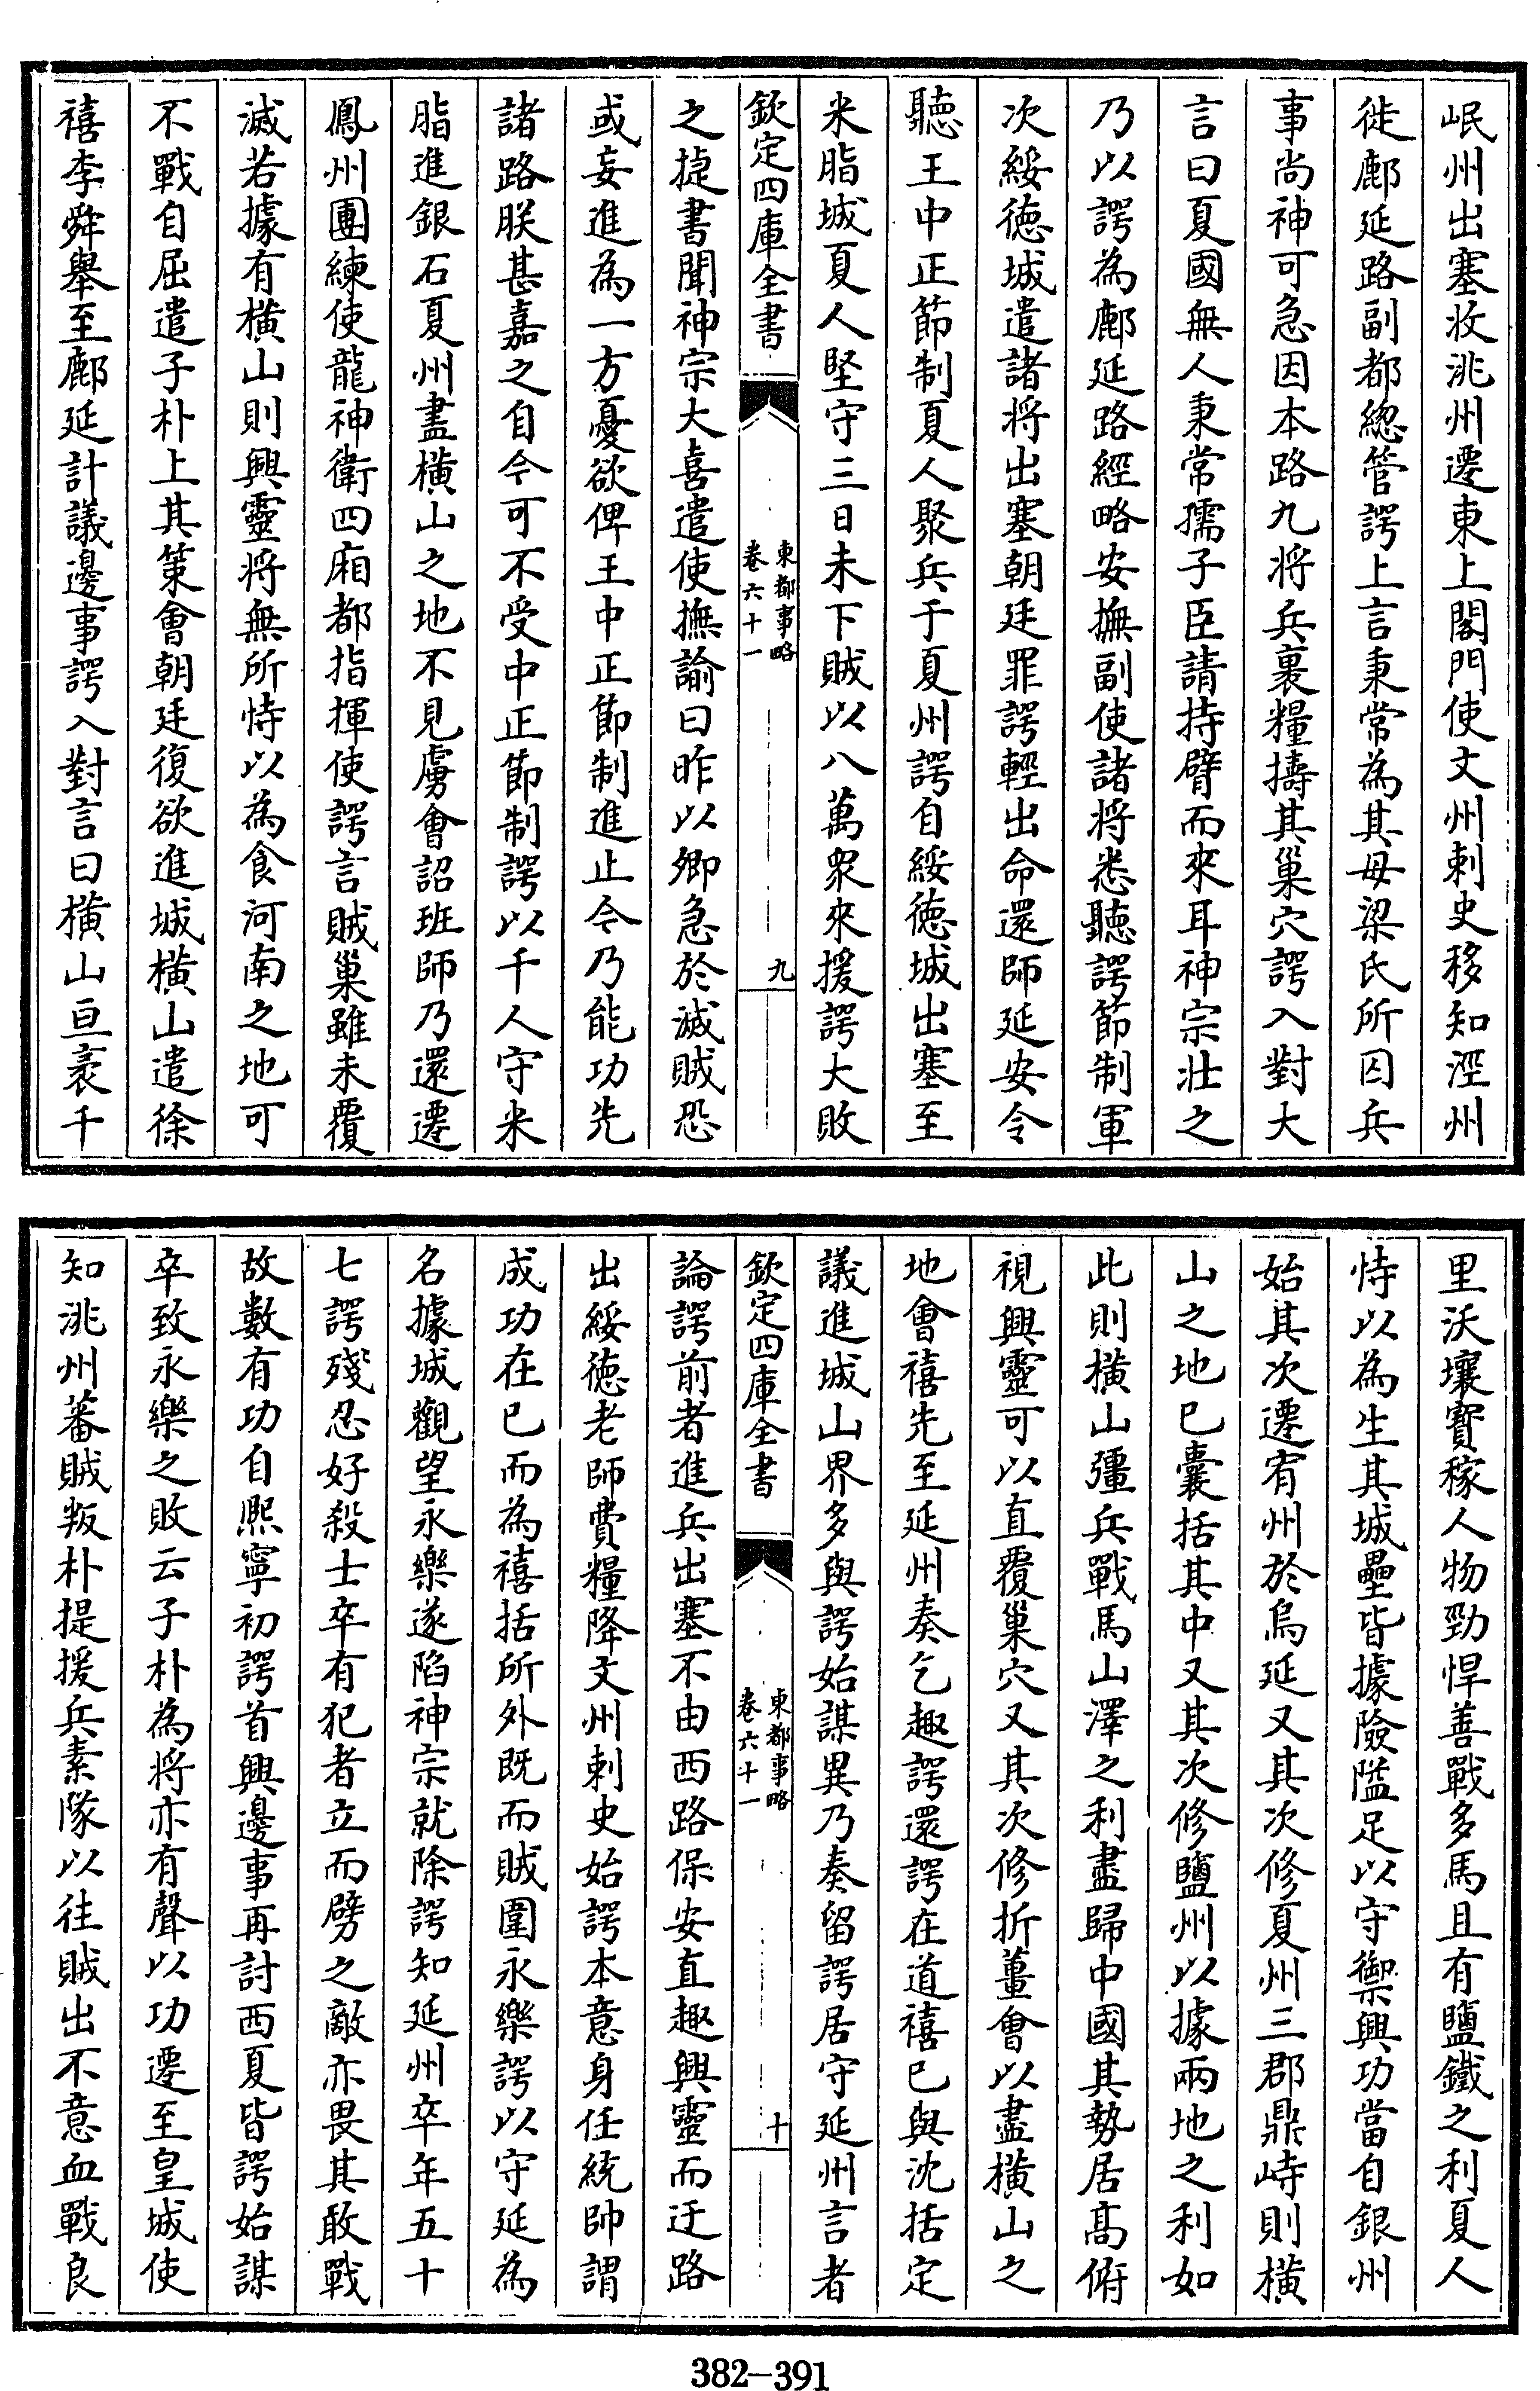 岷州出塞收洮州遷東上閤門使文州刺史移知涇州
徙鄜延路副都總管諤上言秉常為其母梁氏所囚兵
事尚神可急因本路九將兵裹糧擣其巢穴諤入對大
言曰夏國無人秉常孺子臣請持臂而來耳神宗壯之
乃以諤為鄜延路經略安撫副使諸將悉聽諤節制軍
次綏徳城遣諸將出塞朝廷罪諤輕出命還師延安令
聽王中正節制夏人聚兵于夏州諤自綏徳城出塞至
米脂城夏人堅守三日未下賊以八萬衆來援諤大敗
欽定四庫全書
東都事略
卷六十一
九
之捷書聞神宗大喜遣使撫諭曰昨以卿急於滅賊恐
或妄進為一方憂欲俾王中正節制進止令乃能功先
諸路朕甚嘉之自今可不受中正節制諤以千人守米
脂進銀石夏州盡橫山之地不見虜會詔班師乃還遷
鳳州團練使龍神衛四廂都指揮使諤言賊巢雖未覆
滅若據有橫山則興靈將無所恃以為食河南之地可
不戰自屈遣子朴上其策會朝廷復欲進城橫山遣徐
禧李舜舉至鄜延計議邊事諤入對言曰橫山亘袤千
里沃壤寶稼人物勁悍善戰多馬且有鹽鐵之利夏人
恃以為生其城壘皆據險隘足以守禦興功當自銀州
始其次遷宥州於烏延又其次修夏州三郡鼎峙則橫
山之地已囊括其中又其次修鹽州以據兩地之利如
此則橫山彊兵戰馬山澤之利盡歸中國其勢居髙俯
視興靈可以直覆巢穴又其次修折薑會以盡橫山之
地會禧先至延州奏乞趣諤還諤在道禧已與沈括定
議進城山界多與諤始謀異乃奏留諤居守延州言者
欽定四庫全書
東都事略
卷六十一
十
論諤前者進兵出塞不由西路保安直趣興靈而迂路
出綏徳老師費糧降文州刺史始諤本意身任統帥謂
成功在已而為禧括所外既而賊圍永樂諤以守延為
名據城觀望永樂遂陷神宗就除諤知延州卒年五十
七諤殘忍好殺士卒有犯者立而劈之敵亦畏其敢戰
故數有功自熈寧初諤首興邊事再討西夏皆諤始謀
卒致永樂之敗云子朴為將亦有聲以功遷至皇城使
知洮州蕃賊叛朴提援兵素隊以往賊出不意血戰良
382-391